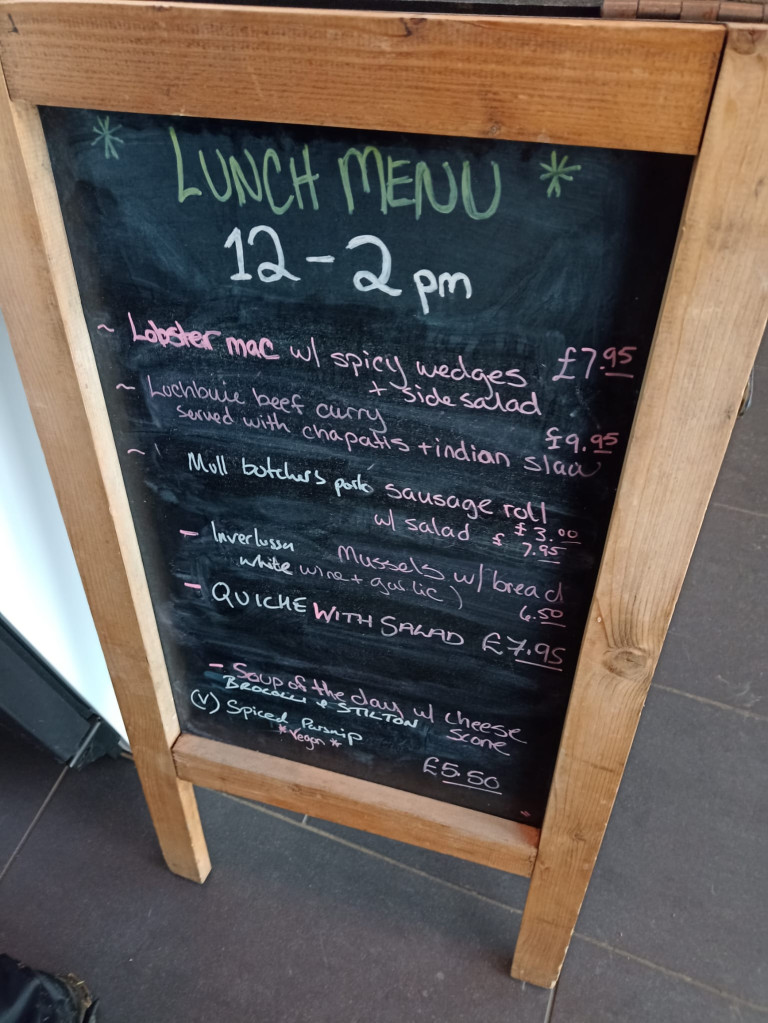 * LUNCH MENU *
12 - 2 pm
~ Lobster mac w/ spicy wedges £7.95
+ side salad
~ Lochbuie beef curry
served with chapatis + indian slaw £9.95
~ Mull butchers pork sausage roll £3.00
w/ salad £7.95
- Inverlussa Mussels w/ bread
white wine + garlic) 6.50
- QUICHE WITH SALAD £7.95
- Soup of the day w/ cheese
BROCOLLI & STILTON scone
(V) Spiced Parsnip
*vegan*
£5.50